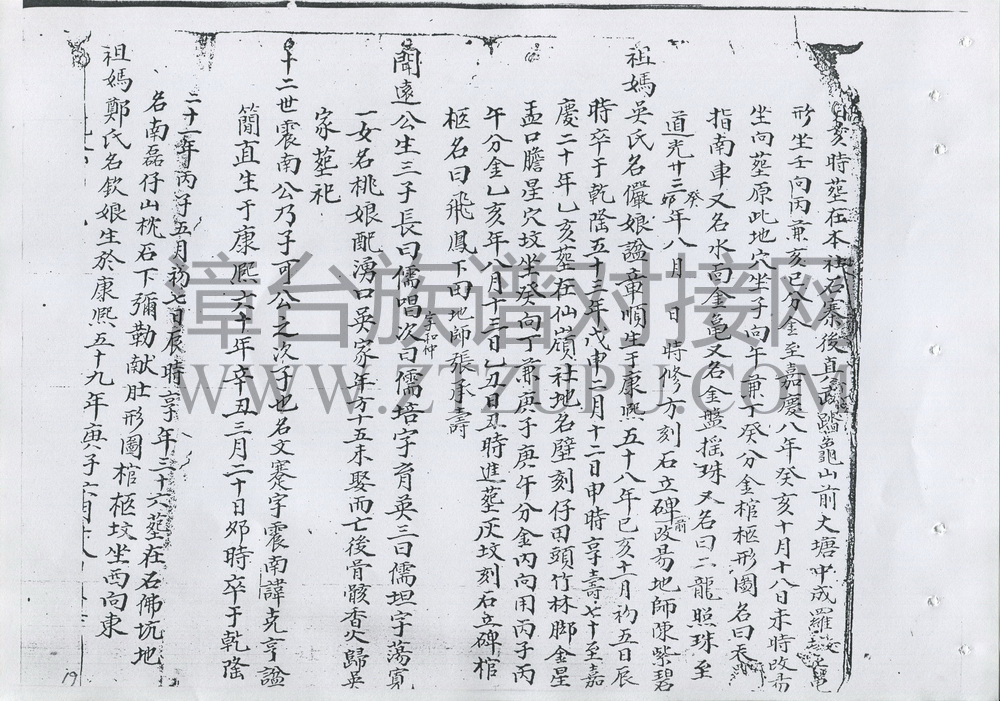 亥時塟在本社石寨後直為踏龜山前大塘中成羅
形坐壬向丙兼亥巳分金至嘉慶八年癸亥十月十八日未時改
坐向塟原此地穴坐子向午兼丁癸分金棺柩形圖名曰天
指南車又名水面金龜又名金盤摇珠又名曰二龍照珠至
道光廿三癸卯年八月 日 時修方刻石立碑前改易地師陳紫碧
祖媽吳氏名儼娘謚章順生于康熙五十八年己亥十一月初五日辰
時卒于乾隆五十三年戊申二月十二日申時享壽七十至嘉
慶二十年乙亥塟在仙嶺社地名壁刻仔田頭竹林脚金星
孟口膽星穴坟坐癸向丁兼庚子庚午分金内向用丙子丙
午分金乙亥年八月十三日乙丑日丑時進塟灰坟刻石立碑棺
柩名曰飛鳳下田地師張承壽
聞遠公生三子長曰儒唱次曰儒培字育英三曰儒坦字蕩寬
字和仲
一女名桃娘配湧口吳家年方十五未娶而亡後骨骸香火歸吳
家塟祀
十二世震南公乃子可公之次子也名文蹇字震南諱克亨謚
簡直生于康熙六十年辛丑三月二十日卯時卒于乾隆
二十一年丙子五月初七日辰時享年三十六塟在石佛坑地
名南磊仔山枕石下彌勒献肚形圖棺柩坟坐西向東
祖媽鄭氏名欽娘生於康熙五十九年庚子六月十八
19
章台族谱对接网
WWW.ZTZUPU.COM